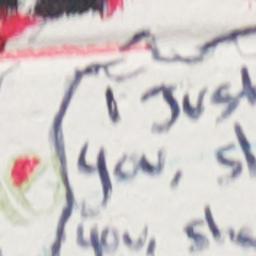 I Just
you, sh
you, sha